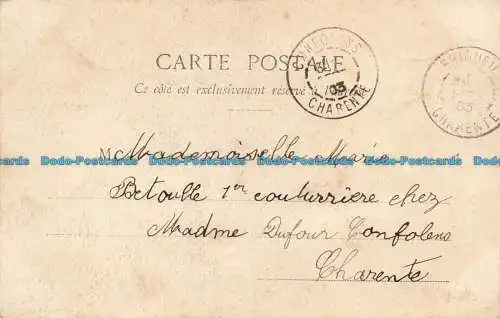 CARTE POSTALE
Ce côté est exclusivement réservé
CONFOLENS
03
CHARENTE
03
CHARENTE
Dodo-Postcards Dodo-Postcards Dodo-Postcards Dodo-Postcards Dodo-Postcards Dodo-Postcards
M Mademoiselle Maria
Betoulle 1er couturriere chez
Madme Dufour Confolens
Charente